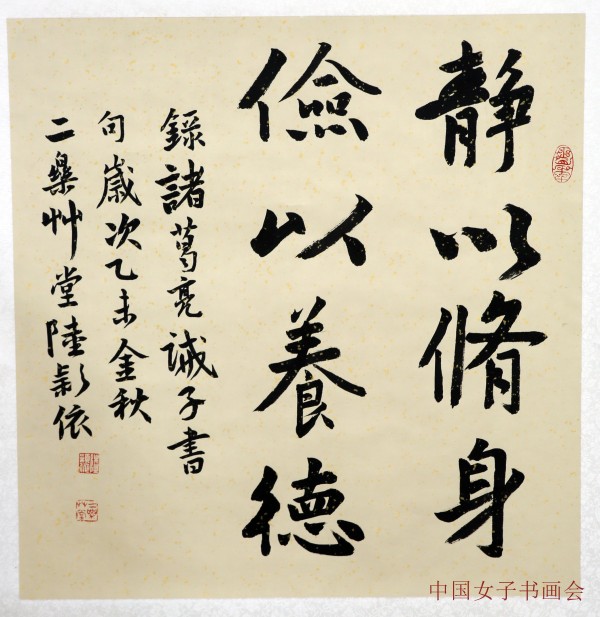 静以脩身
儉以養德
録諸葛亮誡子書
句歲次乙未金秋
二樂艸堂陸彩依
中国女子书画会